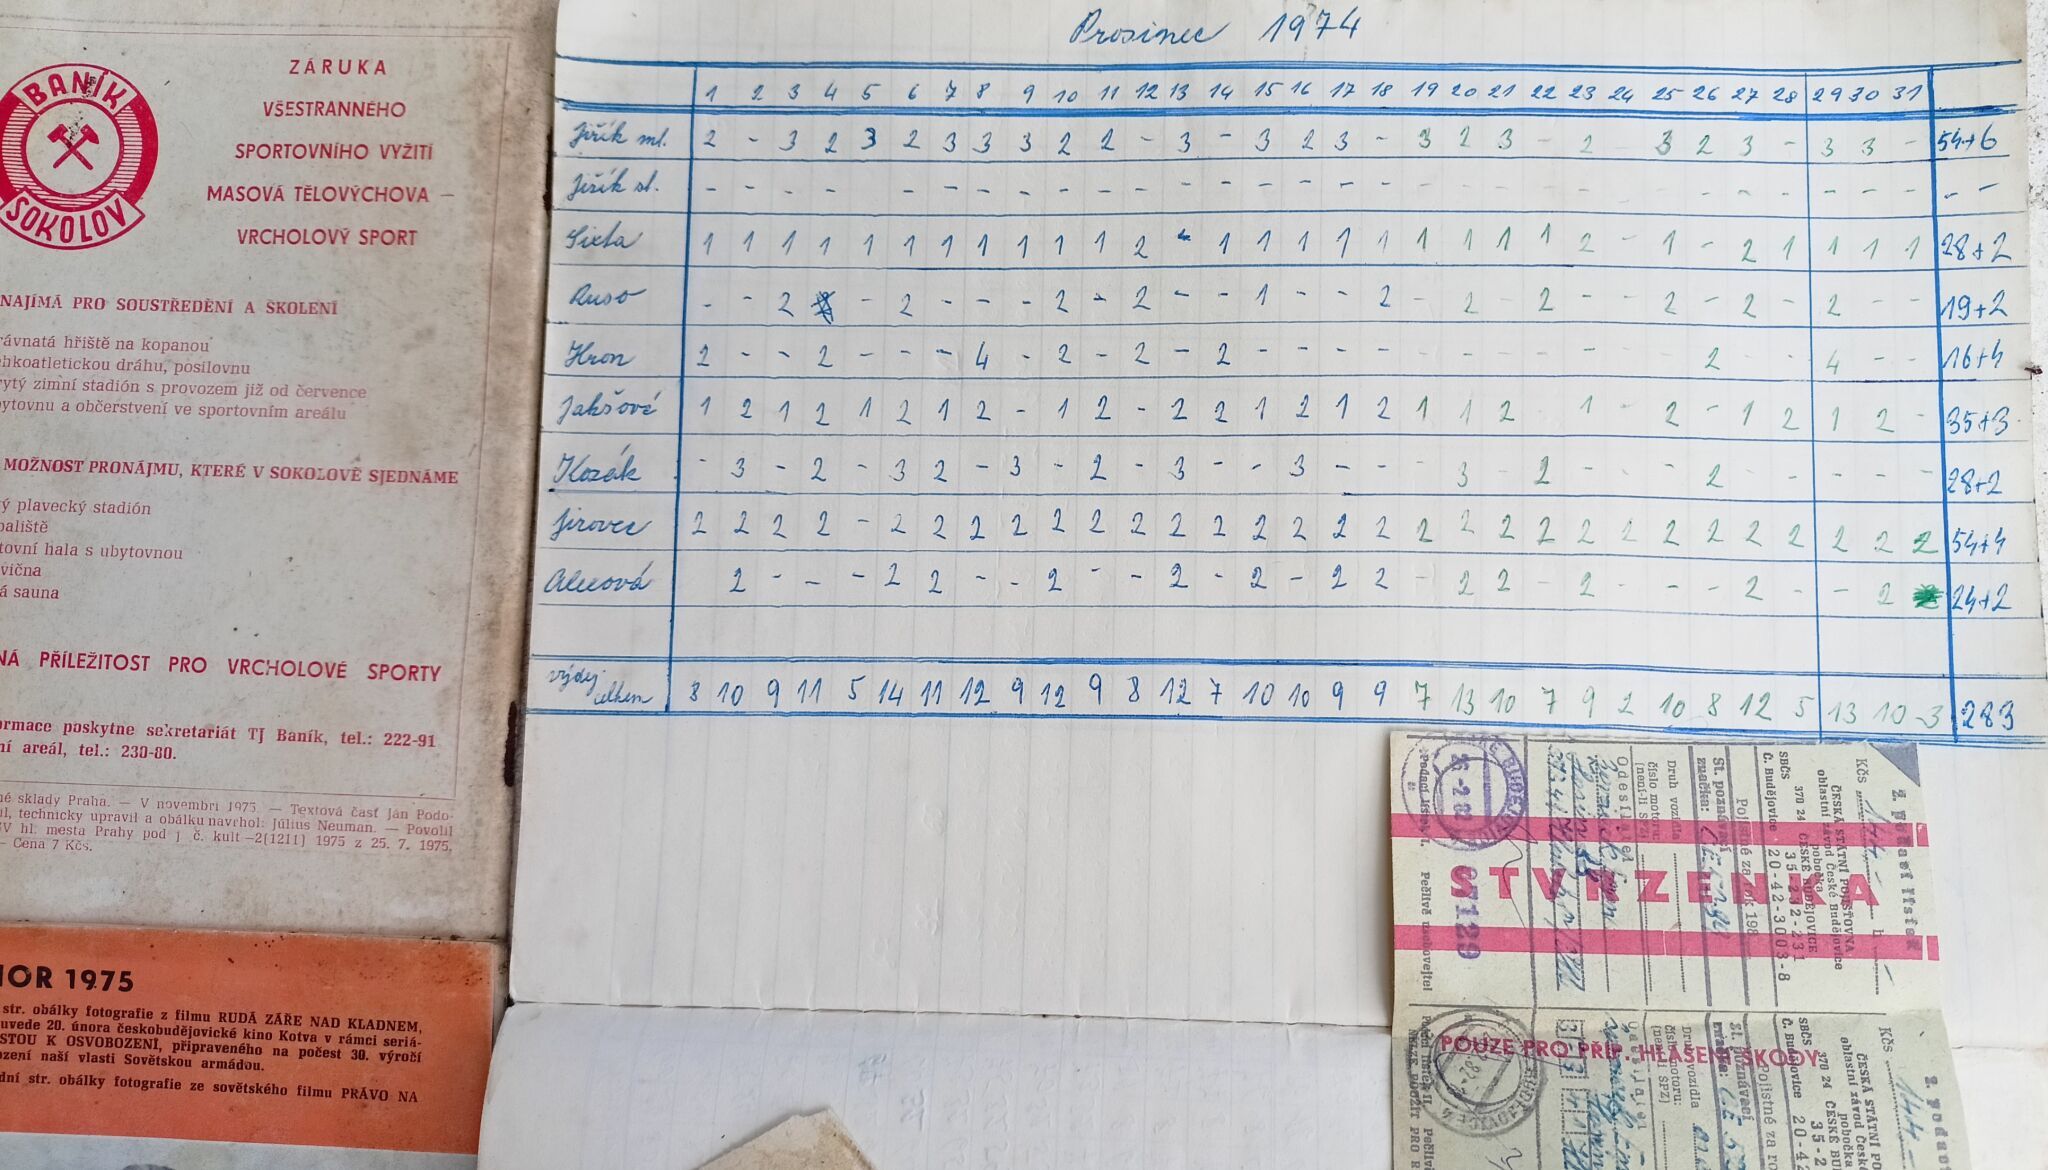 BANÍK
SOKOLOV
ZÁRUKA
VŠESTRANNÉHO
SPORTOVNÍHO VYŽITÍ
MASOVÁ TĚLOVÝCHOVA —
VRCHOLOVÝ SPORT
NAJÍMÁ PRO SOUSTŘEDĚNÍ A ŠKOLENÍ
rávnatá hřiště na kopanou
ehkoatletickou dráhu, posilovnu
rytý zimní stadión s provozem již od července
bytovnu a občerstvení ve sportovním areálu
MOŽNOST PRONÁJMU, KTERÉ V SOKOLOVĚ SJEDNÁME
ý plavecký stadión
paliště
tovní hala s ubytovnou
vična
á sauna
NÁ PŘÍLEŽITOST PRO VRCHOLOVÉ SPORTY
ormace poskytne sekretariát TJ Baník, tel.: 222-91
ní areál, tel.: 230-80.
né sklady Praha. — V novembri 1975. — Textová časť Ján Podo-
ul, technicky upravil a obálku navrhol: Július Neuman. — Povolil
SV hl. mesta Prahy pod j. č. kult —2(1211) 1975 z 25. 7. 1975.
— Cena 7 Kčs.
NOR 1975
str. obálky fotografie z filmu RUDÁ ZÁŘE NAD KLADNEM,
uvede 20. února českobudějovické kino Kotva v rámci seriá-
STOU K OSVOBOZENÍ, připraveného na počest 30. výročí
ození naší vlasti Sovětskou armádou.
dní str. obálky fotografie ze sovětského filmu PRÁVO NA
Prosinec 1974
1 2 3 4 5 6 7 8 9 10 11 12 13 14 15 16 17 18 19 20 21 22 23 24 25 26 27 28 29 30 31
Jiřík ml. 2 - 3 2 3 2 3 3 3 2 2 - 3 - 3 2 3 - 3 2 3 - 2 - 3 2 3 - 3 3 - 54+6
Jiřík st. - - - - - - - - - - - - - - - - - - - - - - - - - - - - - - - - -
Sixta 1 1 1 1 1 1 1 1 1 1 1 2 - 1 1 1 1 1 1 1 1 1 2 - 1 - 2 1 1 1 1 28+2
Ruso - - 2 - 2 - - - 2 - 2 - - 1 - - 2 - 2 - 2 - - 2 - 2 - 2 - - 19+2
Hron 2 - - 2 - - - 4 - 2 - 2 - 2 - - - - - - - - - - - 2 - - 4 - - 16+4
Jakšové 1 2 1 2 1 2 1 2 - 1 2 - 2 2 1 2 1 2 1 1 2 - 1 - 2 - 1 2 1 2 - 35+3
Kozák - 3 - 2 - 3 2 - 3 - 2 - 3 - - 3 - - - 3 - 2 - - - 2 - - - - - 28+2
Jirovec 2 2 2 2 - 2 2 2 2 2 2 2 2 2 2 2 2 2 2 2 2 2 2 2 2 2 2 2 2 2 2 54+4
2 - - - 2 2 - - 2 - - 2 - 2 - 2 2 - 2 2 - 2 - - - 2 - - 2 24+2
výdej celkem 8 10 9 11 5 14 11 12 9 12 9 8 12 7 10 10 9 9 7 13 10 7 9 2 10 8 12 5 13 10 3 283
STVRZENKA
07129
Podací lístek I. Pečlivě uschovejte!
Odesílatel
Druh vozidla
číslo motoru:
(není-li SPZ)
St. poznávací
značka:
Pojistné za rok 198
Č. Budějovice 20-42-3003-8
SBČS 35-232-231
370 24 ČESKÉ BUDĚJOVICE
pobočka
oblastní závod České Budějovice
ČESKÁ STÁTNÍ POJIŠŤOVNA
Kčs 144 h
POUZE PRO PŘÍP. HLÁŠENÍ ŠKODY
Podací lístek II.
Druh vozidla
číslo motoru:
(není-li SPZ)
St. poznávací
Pojistné za ro
Č. Budějovice 20-42
370 24 ČESKÉ BU
oblastní závod Česk
ČESKÁ STÁTNÍ PO
Kčs 144